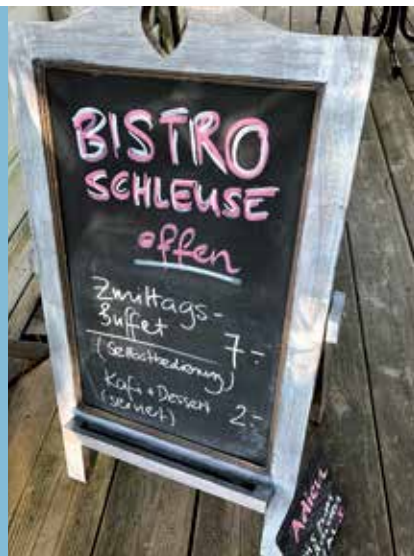 BISTRO
SCHLEUSE
offen
Zmittags-
Buffet 7.-
(Selbstbedienung)
Kafi + Dessert 2.-
(serviert)